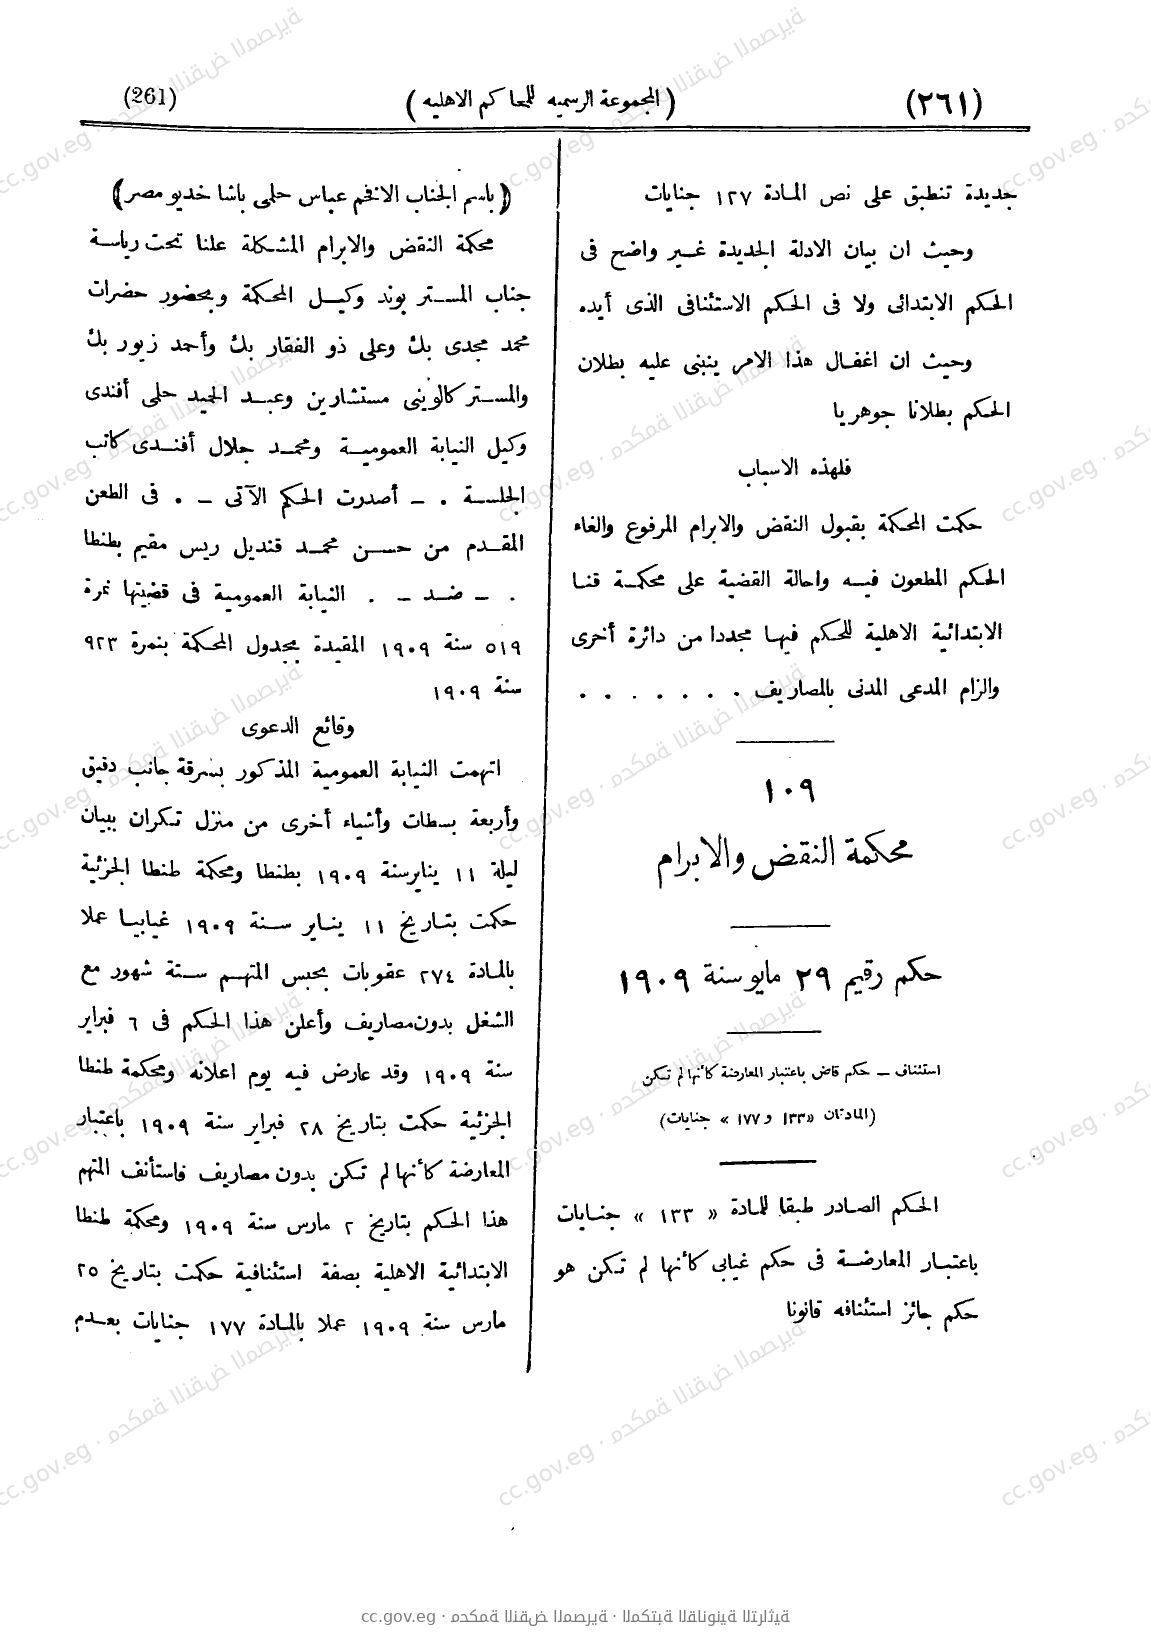 (٢٦١)
(المجموعة الرسميه للمحاكم الاهليه)
(261)
جديدة تنطبق على نص المادة ١٢٧ جنايات
وحيث ان بيان الادلة الجديدة غير واضح فى
الحكم الابتدائى ولا فى الحكم الاستئنافى الذى أيده
وحيث ان اغفال هذا الامر ينبنى عليه بطلان
الحكم بطلانا جوهريا
فلهذه الاسباب
حكمت المحكمة بقبول النقض والابرام المرفوع والغاء
الحكم المطعون فيه واحالة القضية على محكمة قنا
الابتدائية الاهلية للحكم فيها مجددا من دائرة أخرى
والزام المدعى المدنى بالمصاريف . . . . . . .
١٠٩
محكمة النقض والابرام
حكم رقيم ٢٩ مايو سنة ١٩٠٩
استئناف – حكم قاض باعتبار المعارضة كأنها لم تكن
(المادتان «١٣٣ و ١٧٧» جنايات)
الحكم الصادر طبقا للمادة «١٣٣» جنايات
باعتبار المعارضة فى حكم غيابى كأنها لم تكن هو
حكم جائز استئنافه قانونا
(باسم الجناب الافخم عباس حلمى باشا خديو مصر)
محكمة النقض والابرام المشكلة علنا تحت رياسة
جناب المستر بوند وكيل المحكمة وبحضور حضرات
محمد مجدى بك وعلى ذو الفقار بك وأحمد زيور بك
والمستر كالوينى مستشارين وعبد المجيد حلمى أفندى
وكيل النيابة العمومية ومحمد جلال أفندى كاتب
الجلسة . – أصدرت الحكم الآتى – . فى الطعن
المقدم من حسن محمد قنديل ريس مقيم بطنطا
. – ضد – . النيابة العمومية فى قضيتها نمرة
٥١٩ سنة ١٩٠٩ المقيدة بجدول المحكمة بنمرة ٩٢٣
سنة ١٩٠٩
وقائع الدعوى
اتهمت النيابة العمومية المذكور بسرقة جانب دقيق
وأربعة بسطات وأشياء أخرى من منزل تكران ببيان
ليلة ١١ يناير سنة ١٩٠٩ بطنطا ومحكمة طنطا الجزئية
حكمت بتاريخ ١١ يناير سنة ١٩٠٩ غيابيا عملا
بالمادة ٢٧٤ عقوبات بحبس المتهم ستة شهور مع
الشغل بدون مصاريف وأعلن هذا الحكم فى ٦ فبراير
سنة ١٩٠٩ وقد عارض فيه يوم اعلانه ومحكمة طنطا
الجزئية حكمت بتاريخ ٢٨ فبراير سنة ١٩٠٩ باعتبار
المعارضة كأنها لم تكن بدون مصاريف فاستأنف المتهم
هذا الحكم بتاريخ ٢ مارس سنة ١٩٠٩ ومحكمة طنطا
الابتدائية الاهلية بصفة استئنافية حكمت بتاريخ ٢٥
مارس سنة ١٩٠٩ عملا بالمادة ١٧٧ جنايات بعدم
cc.gov.eg · محكمة النقض المصرية · المكتبة القانونية التراثية